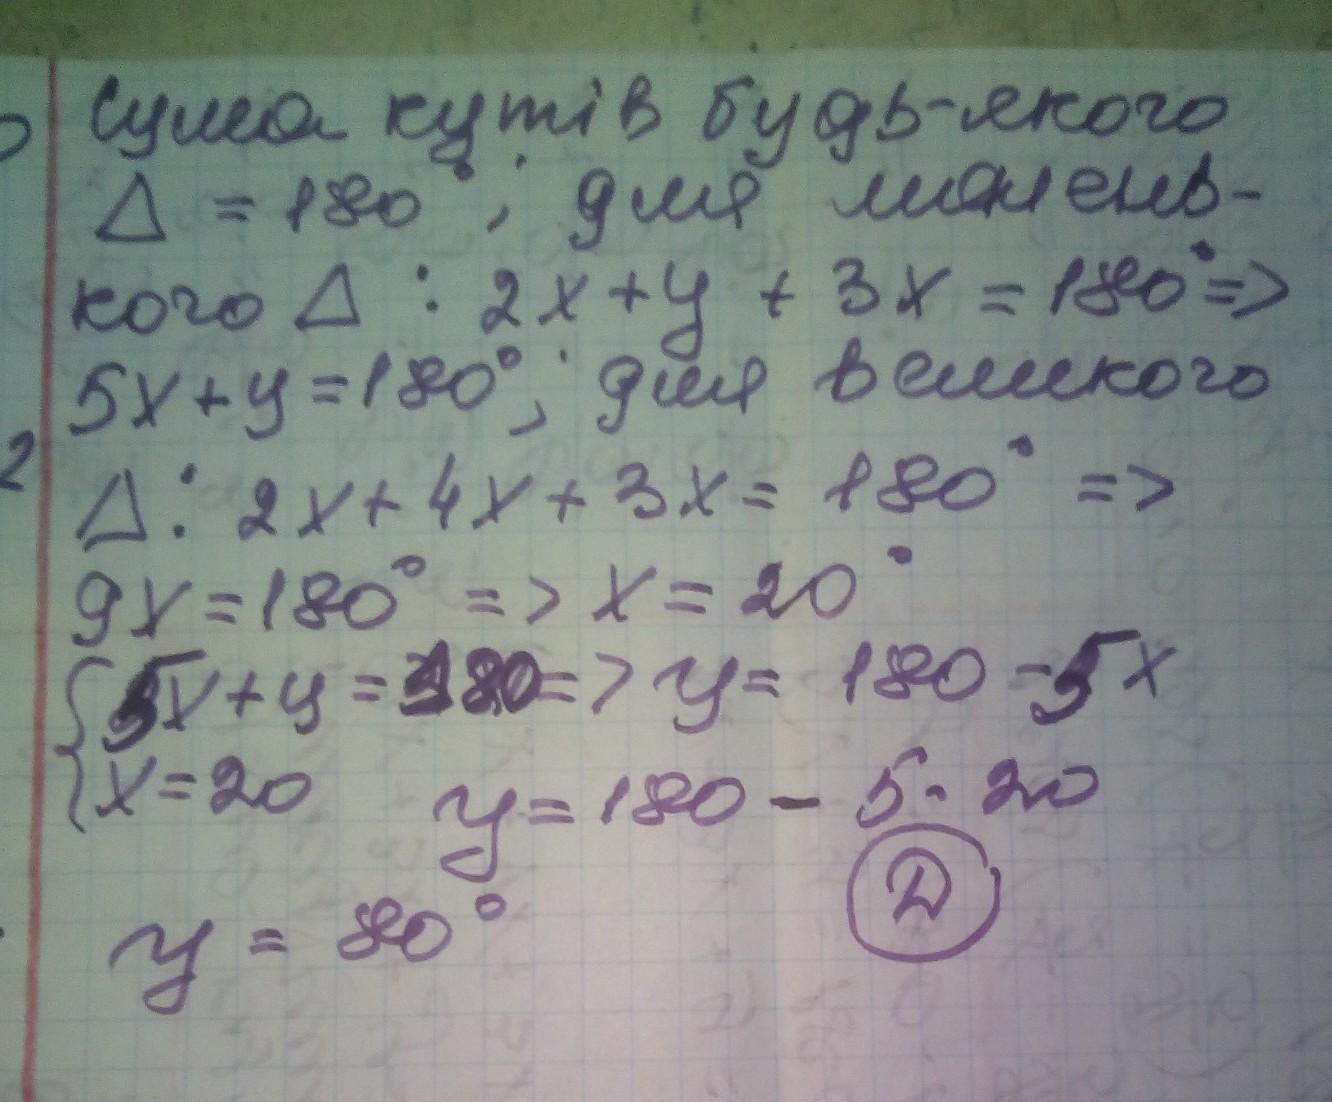 Сума кутів будь-якого
Δ = 180°; для малень-
кого Δ: 2x + y + 3x = 180° =>
5x + y = 180°; для великого
2
Δ: 2x + 4x + 3x = 180° =>
9x = 180° => x = 20°
{ 5x + y = 180 => y = 180 - 5x
x = 20 y = 180 - 5 · 20
Д
y = 80°